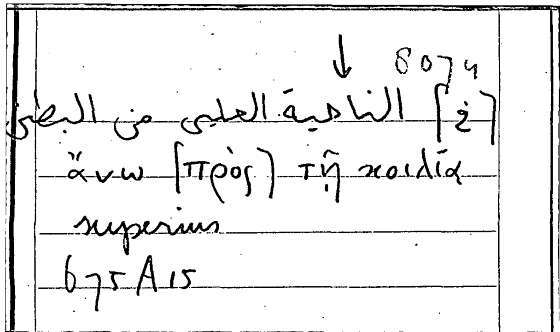 ↓ 8074
[في] الناحية العليى من البطن
ἄνω [πρὸς] τῇ κοιλίᾳ
superius
675 A 15